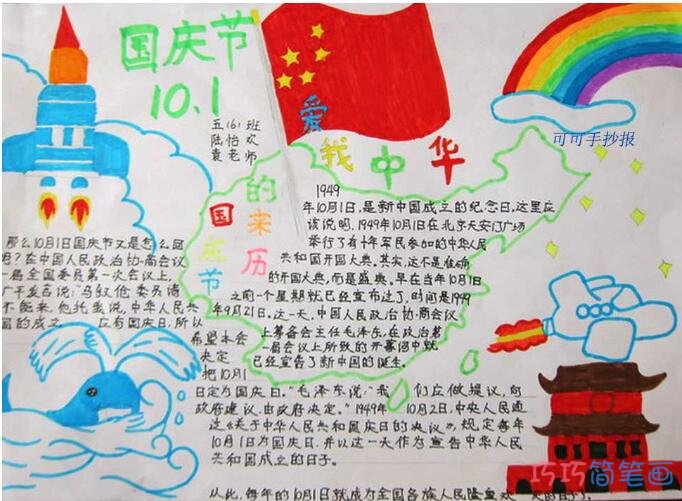 国庆节
10.1
五(6)班
陆怡欢
袁老师
爱我中华
可可手抄报
国庆节的来历
1949
年10月1日,是新中国成立的纪念日,这里应
该说明,1949年10月1日在北京天安门广场
举行了有十年军民参加的中华人民
共和国开国大典。其实,这不是准确
的开国大典,而是盛典。早在当年10月1日
之前一个星期就已经宣布过了,时间是1949
年9月21日。这一天,中国人民政治协商会议
上筹备会主任毛泽东,在政治第
一届会议上所致的开幕词中就
已经宣告了新中国的诞生。
那么10月1日国庆节又是怎么回
?在中国人民政治协商会议
届全国委员第一次会议上,
广平发言说:“马叙伦委员请
不能来,他托我说,中华人民共
国的成立 应有国庆日,所以
希望本会
决定
把10月1
日定为国庆日。”毛泽东说,“我们应做提议,向
政府建议,由政府决定。”1949年10月2日,中央人民
过《关于中华人民共和国国庆日的决议》,规定每年
10月1日为国庆日,并以这一天作为宣告中华人民
共和国成立的日子。
从此,每年的10月1日就成为全国各族人民隆重欢
巧巧简笔画